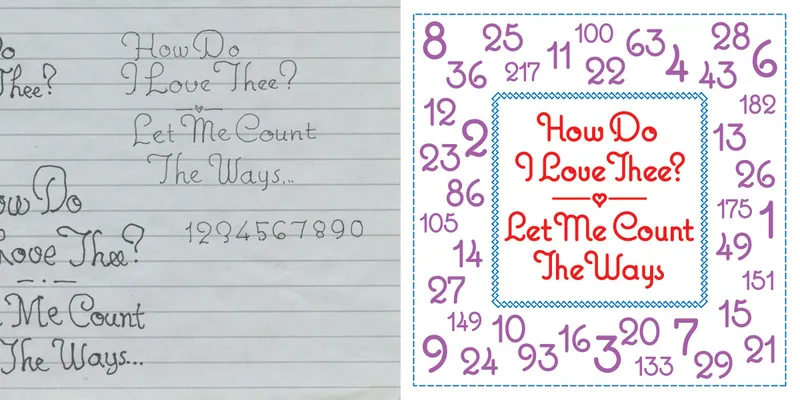 o
Thee?
How Do
I Love Thee?
Let Me Count
The Ways...
ow Do
Love Thee?
Me Count
The Ways...
1234567890
8 25 11 100 63 28 6
36 217 22 4 43
12 2 182
13
23 26
86
105 175 1
14 49
27 151
149 10 16 20 7 15
9 24 93 3 133 29 21
How Do
I Love Thee?
Let Me Count
The Ways